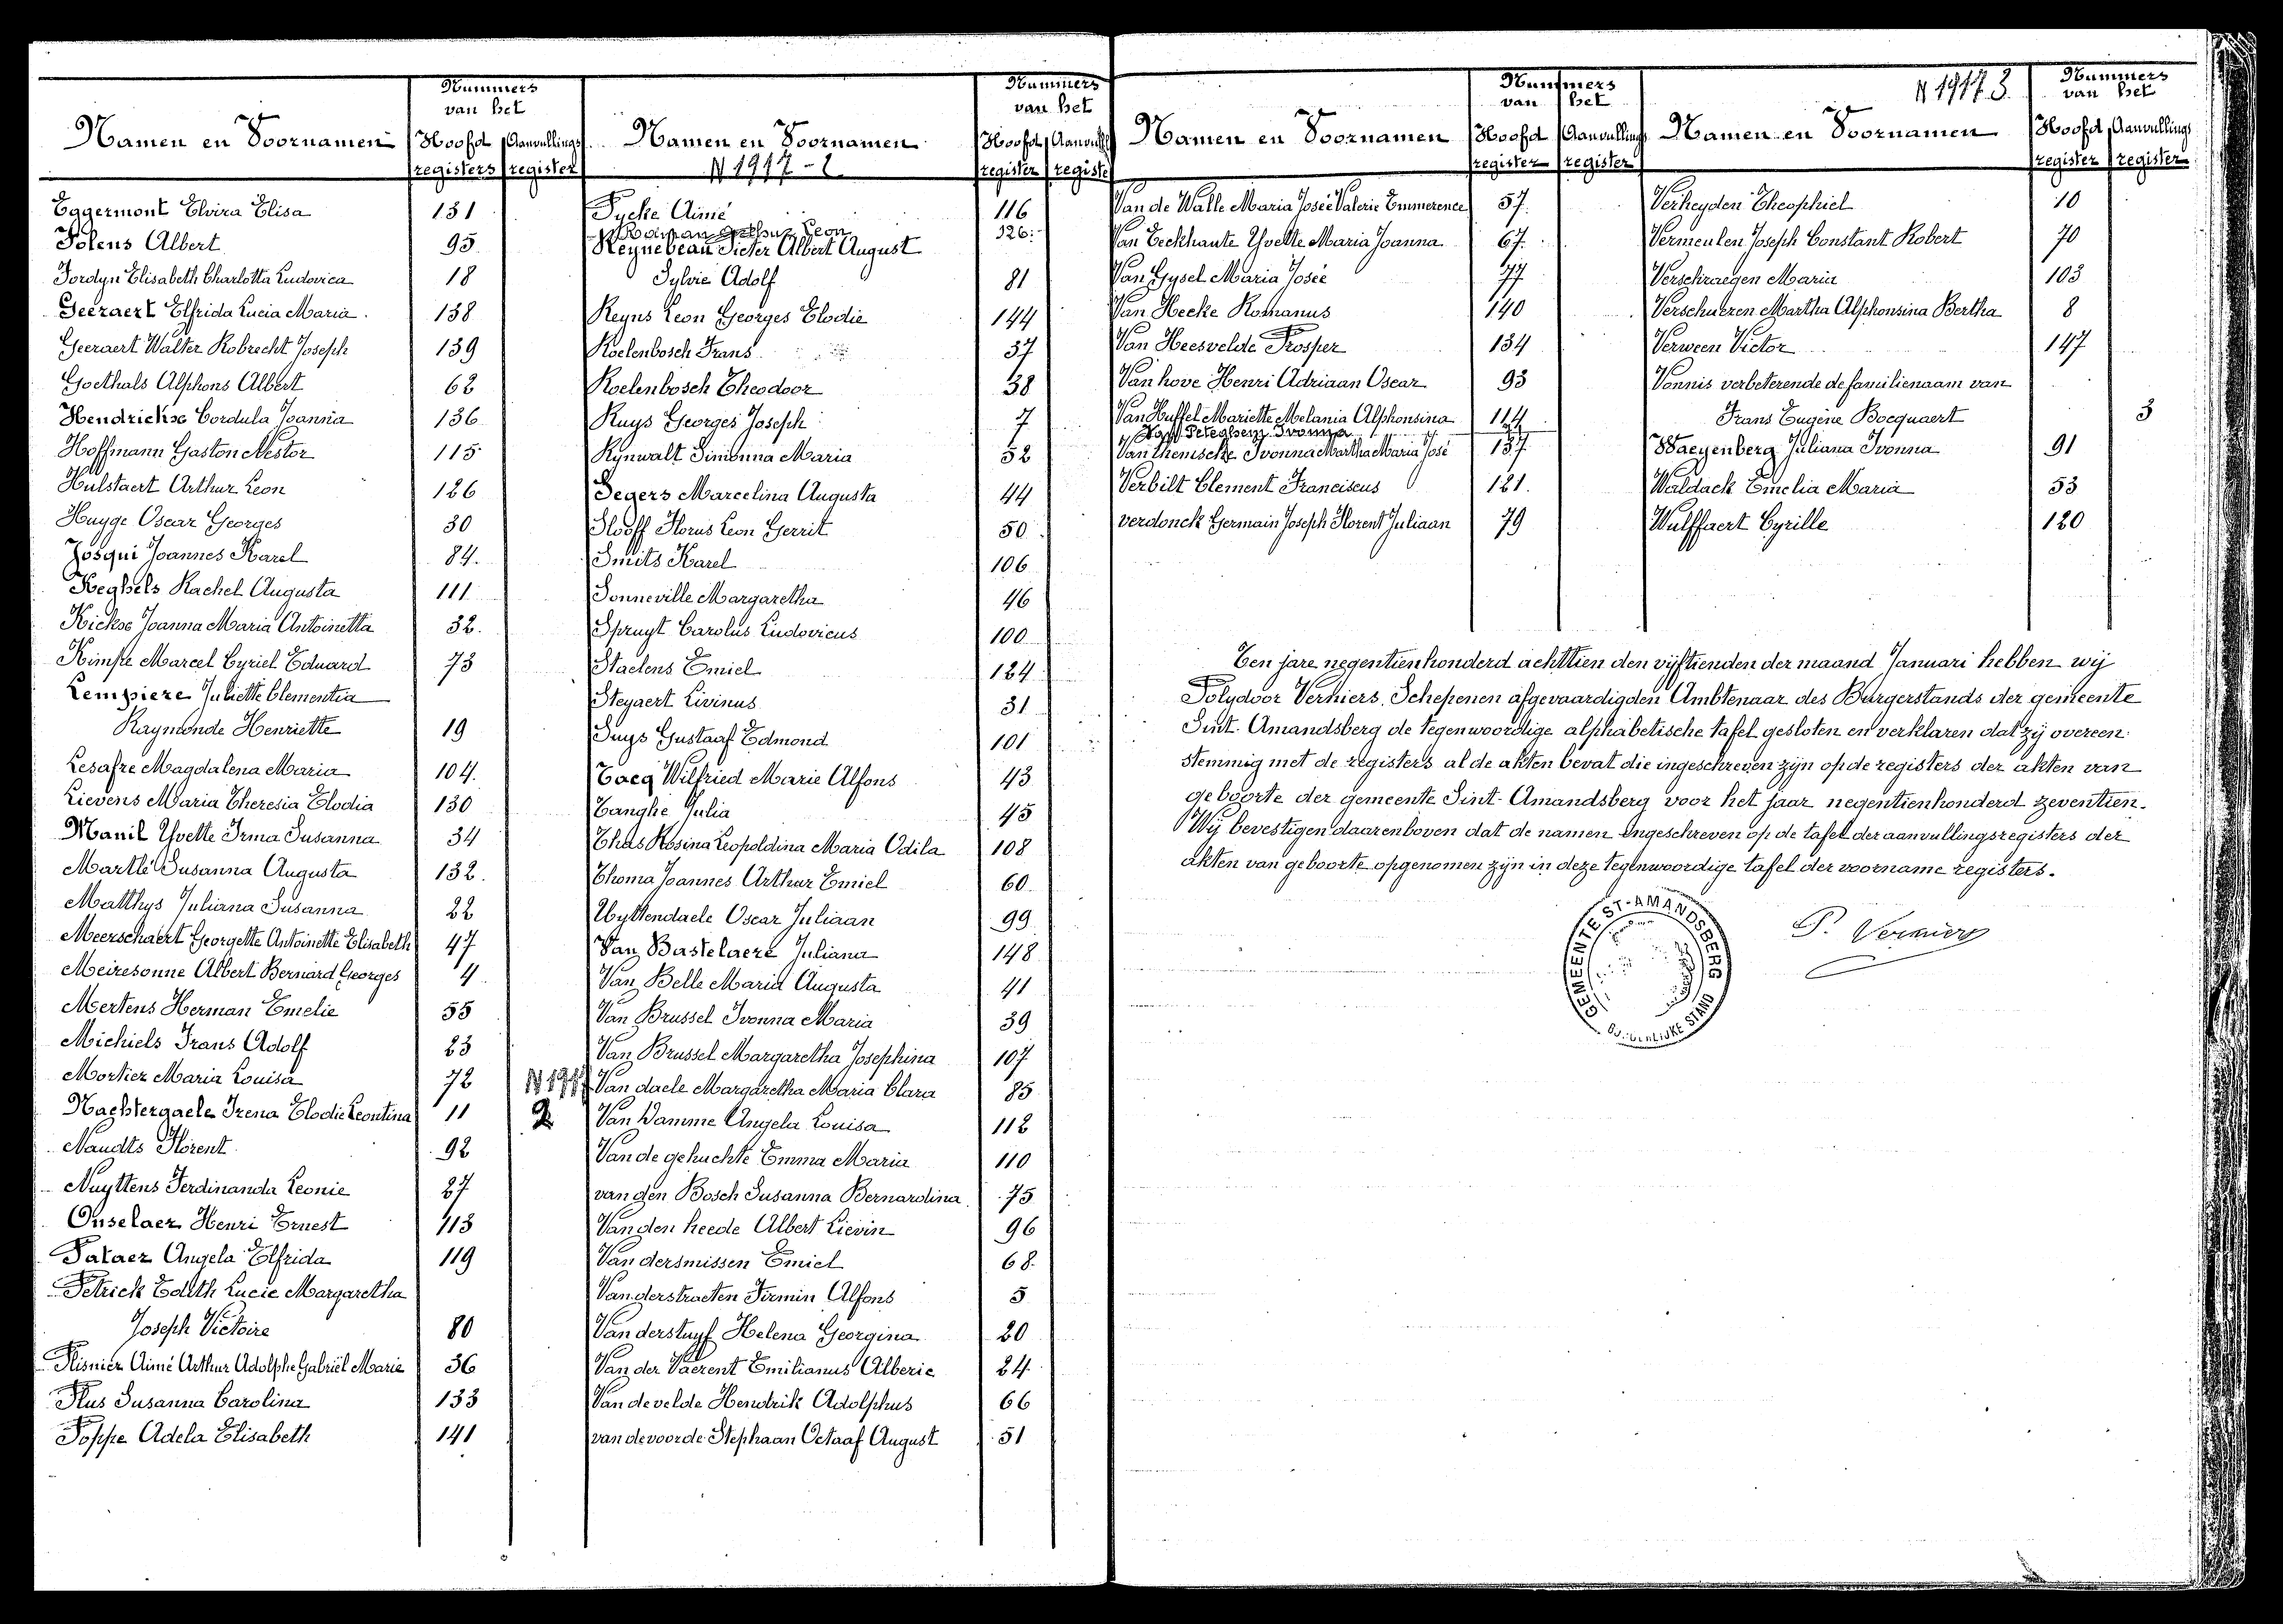 Namen en Voornamen
Nummers
van het
Hoofd Aanvullings
registers register
Eggermont Elvira Elisa 131
Folens Albert 95
Fordyn Elisabeth Charlotta Ludovica 18
Geeraert Elfrida Lucia Maria 138
Geeraert Walter Robrecht Joseph 139
Goethals Alphons Albert 62
Hendrickse Cordula Joanna 136
Hoffmann Gaston Nestor 115
Hulstaert Arthur Leon 126
Huyge Oscar Georges 30
Josqui Joannes Karel 84
Keghels Rachel Augusta 111
Kickse Joanna Maria Antoinetta 32
Kimpe Marcel Cyriel Eduard 73
Lempiere Juliette Clementia
Raymonde Henriette 19
Lesafre Magdalena Maria 104
Lievens Maria Theresia Elodia 130
Manil Yvette Irma Susanna 34
Martlé Susanna Augusta 132
Matthys Juliana Susanna 22
Meerschaert Georgette Antoinette Elisabeth 47
Meiresonne Albert Bernard Georges 4
Mertens Herman Emelie 55
Michiels Frans Adolf 23
Mortier Maria Louisa 72
Nachtergaele Irena Elodie Leontina 11
Naudts Florent 92
Nuyttens Ferdinanda Leonie 27
Onselaer Henri Ernest 113
Pataer Angela Elfrida 119
Petrick Edith Lucie Margaretha
Joseph Victoire 80
Plisnier Aimé Arthur Adolphe Gabriël Marie 36
Plus Susanna Carolina 133
Poppe Adela Elisabeth 141
Namen en Voornamen
N 1917 - 2
Nummers
van het
Hoofd
register registe
Pycke Aimé 116
Arthur Leon 126
Reynebeau Pieter Albert August
Sylvie Adolf 81
Reyns Leon Georges Elodie 144
Roelenbosch Frans 37
Roelenbosch Theodoor 38
Ruys Georges Joseph 7
Rynwalt Simonna Maria 52
Segers Marcelina Augusta 44
Slooff Florus Leon Gerrit 50
Smits Karel 106
Sonneville Margaretha 46
Spruyt Carolus Ludovicus 100
Staelens Emiel 124
Steyaert Livinus 31
Suys Gustaaf Edmond 101
Tacq Wilfried Marie Alfons 43
Tanghe Julia 45
Thas Rosina Leopoldina Maria Odila 108
Thoma Joannes Arthur Emiel 60
Uyttendaele Oscar Juliaan 99
Van Bastelaere Juliana 148
Van Belle Maria Augusta 41
Van Brussel Ivonna Maria 39
Van Brussel Margaretha Josephina 107
N 1917 Van daele Margaretha Maria Clara 85
2 Van Damme Angela Louisa 112
Van de gehuchte Emma Maria 110
van den Bosch Susanna Bernardina 75
Van den heede Albert Lievin 96
Van dersmissen Emiel 68
Van derstraeten Firmin Alfons 5
Van derstuyf Helena Georgina 20
Van der Vaerent Emilianus Alberic 24
Van de velde Hendrik Adolphus 66
van de voorde Stephaan Octaaf August 51
Namen en Voornamen
Nummers
van het
Hoofd Aanvullings
register register
Van de Walle Maria Josée Valerie Emmerence 57
Van Eeckhaute Yvette Maria Joanna 67
Van Gysel Maria Josée 77
Van Hecke Romanus 140
Van Heesvelde Prosper 134
Van hove Henri Adriaan Oscar 93
Van Huffel Mariette Melania Alphonsina 114
Van Peteghem Ivonna
Van themsche Ivonna Martha Maria José 137
Verbilt Clement Franciscus 121
verdonck Germain Joseph Florent Juliaan 79
Namen en Voornamen
N 1917 3
Nummers
van het
Hoofd Aanvullings
register register
Verheyden Theophiel 10
Vermeulen Joseph Constant Robert 70
Verschraegen Maria 103
Verschueren Martha Alphonsina Bertha 8
Verween Victor 147
Vonnis verbeterende de familienaam van
Frans Eugène Bocquaert 3
Waeyenberg Juliana Ivonna 91
Waldack Emelia Maria 53
Wulffaert Cyrille 120
Ten jare negentienhonderd achttien den vijftienden der maand Januari hebben wij
Polydoor Verniers, Schepenen afgevaardigden Ambtenaar des Burgerstands der gemeente
Sint-Amandsberg de tegenwoordige alphabetische tafel gesloten en verklaren dat zij overeen-
stemmig met de registers al de akten bevat die ingeschreven zijn op de registers der akten van
geboorte der gemeente Sint-Amandsberg voor het jaar negentienhonderd zeventien.
Wij bevestigen daarenboven dat de namen ingeschreven op de tafel der aanvullingsregisters der
akten van geboorte opgenomen zijn in deze tegenwoordige tafel der voorname registers.
P. Verniers
GEMEENTE ST-AMANDSBERG
BURGERLIJKE STAND